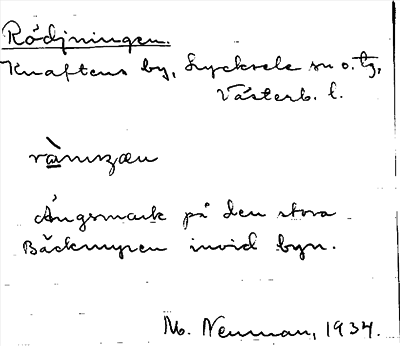 Rödjningen.
Knaftens by, Lycksele sn o. tg,
Västerb. l.
Ängsmark på den stora
Bäckmyren invid byn.
M. Neuman, 1934.